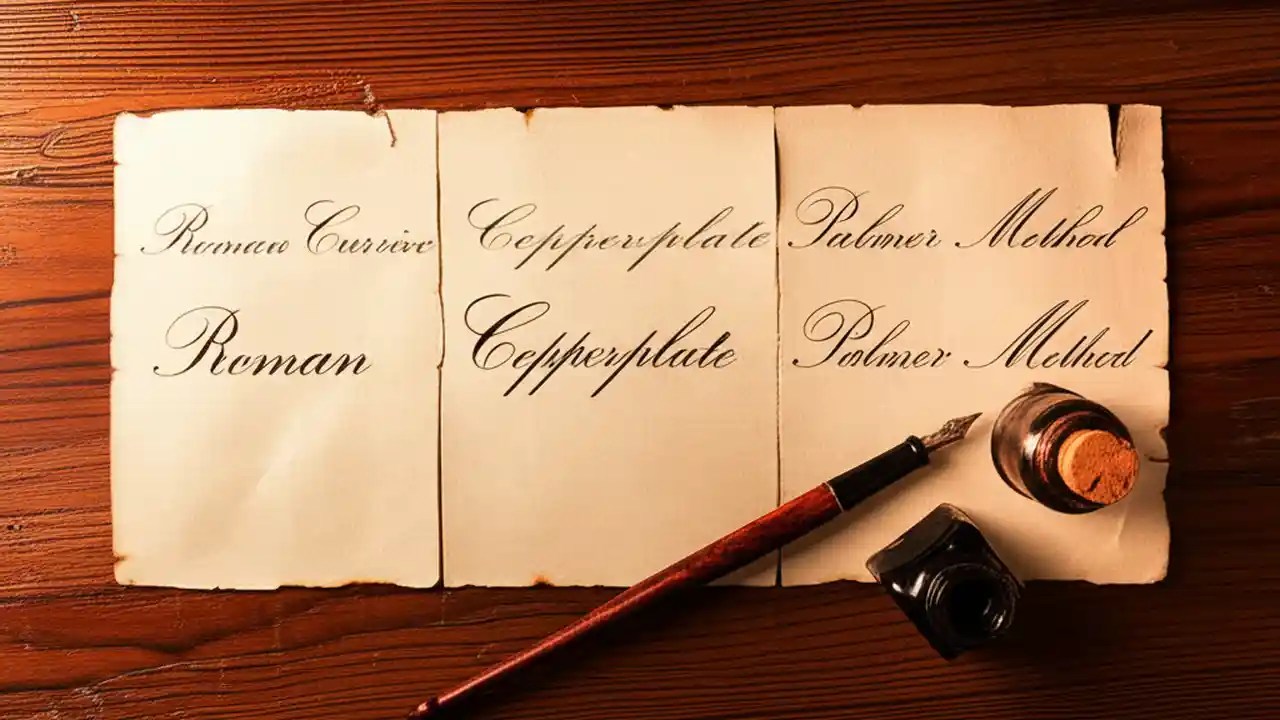 Roman Cursive
Roman
Copperplate
Copperplate
Palmer Method
Palmer Method